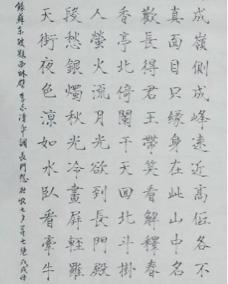 成嶺側成峰遠近高低各不
真面目只緣身在此山中名
歡長得君王帶笑看解釋春
香亭北倚闌干天回北斗掛
人螢火流月光欲到長門殿
段愁銀燭秋光冷畫屏輕羅
天街夜色涼如水臥看牽牛
錄蘇東坡題西林壁李白清平調長門怨杜牧七夕等七絕